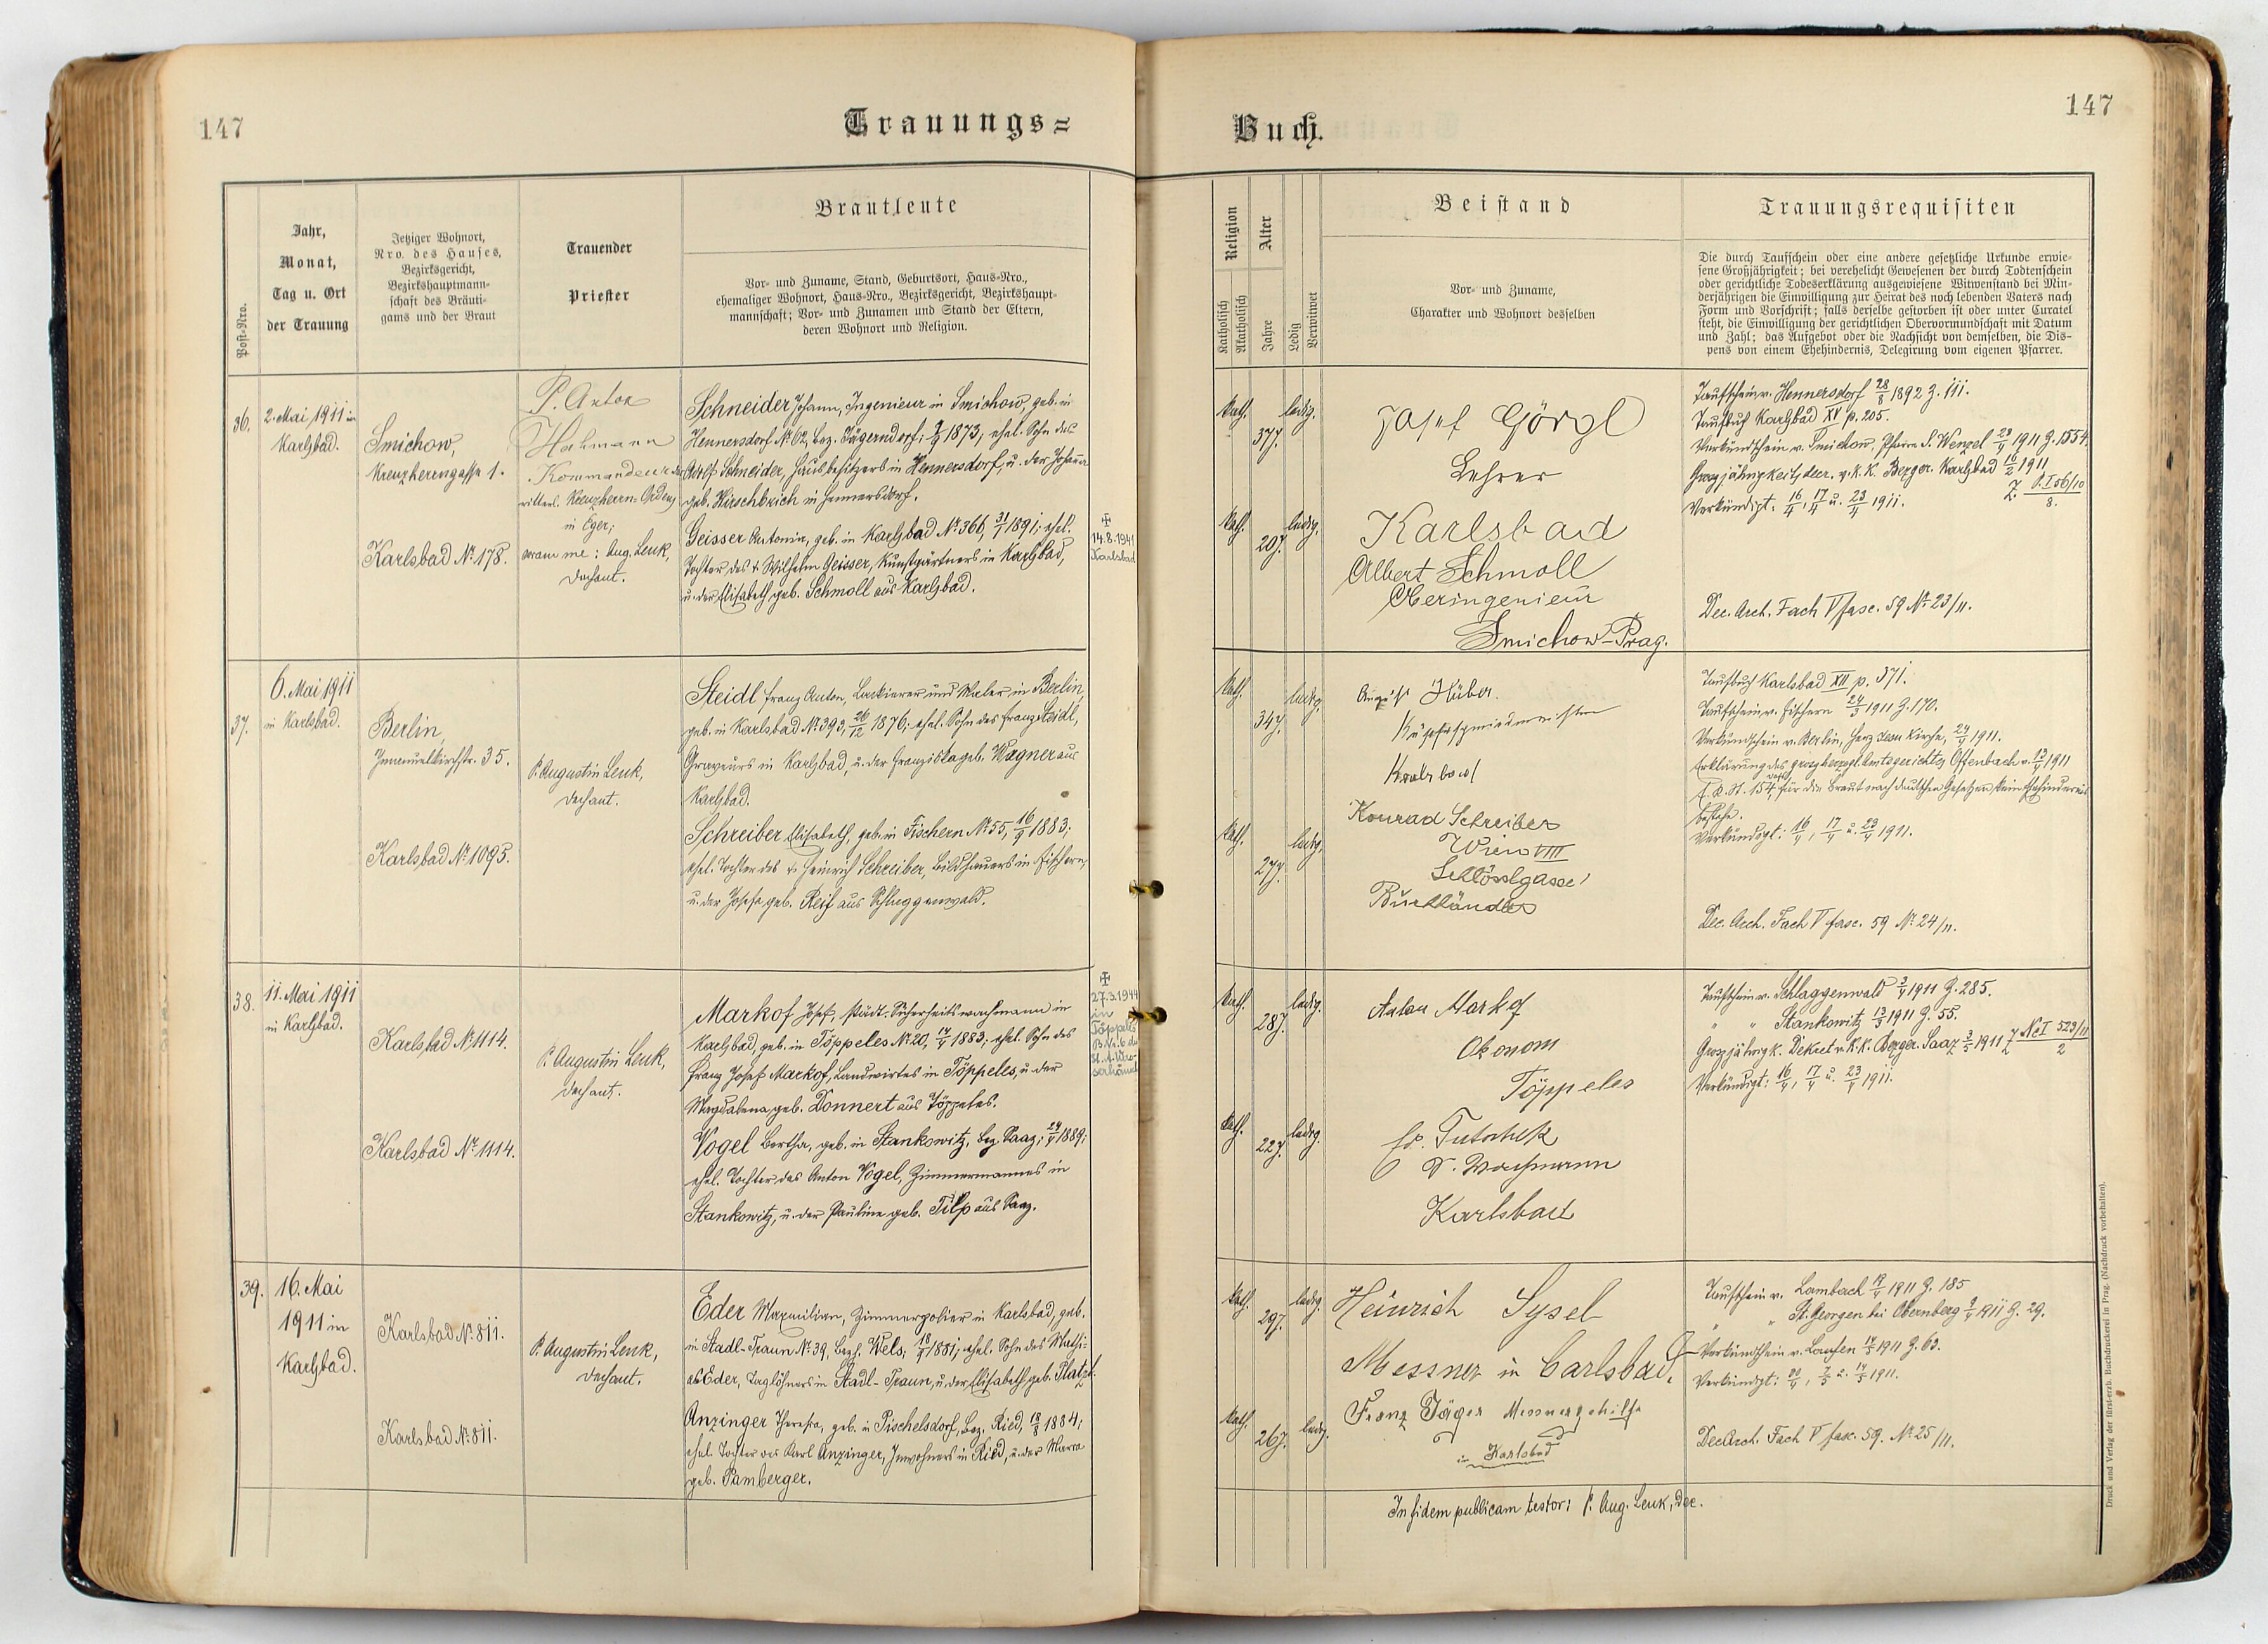 147
Trauungs=
Post-Nro.
Jahr,
Monat,
Tag u. Ort
der Trauung
Jetziger Wohnort,
Nro. des Hauses,
Bezirksgericht,
Bezirkshauptmann-
schaft des Bräuti-
gams und der Braut
Trauender
Priester
Brautleute
Vor- und Zuname, Stand, Geburtsort, Haus-Nro.,
ehemaliger Wohnort, Haus-Nro., Bezirksgericht, Bezirkshaupt-
mannschaft; Vor- und Zunamen und Stand der Eltern,
deren Wohnort und Religion.
36.
2. Mai 1911 in
Karlsbad.
Smichow,
Kreuzherrengasse 1.
Karlsbad No 178.
P. Anton
Hakmann
Kommandeur des
ritterl. Kreuzherrn-Ordens
in Eger;
coram me: Aug. Leuk,
Dechant.
Schneider Johann, Ingenieur in Smichow, geb. in
Hennersdorf No 62, bez. Jägerndorf, 1873; ehel. Sohn des
Adolf Schneider, Hausbesitzers in Hennersdorf, u. der Johanna
geb. Hirschbrich in Hennersdorf.
Geisser Antonia, geb. in Karlsbad No 366, 31/1 1891; ehel.
Tochter des + Wilhelm Geisser, Kunstgärtners in Karlsbad,
u. der Elisabeth geb. Schmoll aus Karlsbad.
14.8.1941
Karlsbad
37.
6. Mai 1911
in Karlsbad.
Berlin,
Immanuelkirchstr. 35.
Karlsbad No 1095.
P. Augustin Leuk,
Dechant.
Steidl Franz Anton, Lackierer und Maler in Berlin,
geb. in Karlsbad No 393, 26/12 1876; ehel. Sohn des Franz Steidl,
Graveurs in Karlsbad, u. der Franziska geb. Wagner aus
Karlsbad.
Schreiber Elisabeth, geb. in Fischern No 55, 16/9 1883;
ehel. Tochter des + Heinrich Schreiber, Bildhauers in Fischern,
u. der Josefa geb. Reif aus Schlaggenwald.
38.
11. Mai 1911
in Karlsbad.
Karlsbad No 1114.
Karlsbad No 1114.
P. Augustin Leuk,
Dechant.
Markof Josef, städt. Sicherheitswachmann in
Karlsbad, geb. in Töppeles No 20, 14/4 1883; ehel. Sohn des
Franz Josef Markof, Landwirtes in Töppeles, u. der
Magdalena geb. Donnert aus Töppeles.
Vogel Bertha, geb. in Stankowitz, bez. Saaz, 24/4 1889;
ehel. Tochter des Anton Vogel, Zimmermannes in
Stankowitz, u. der Pauline geb. Tilp aus Saaz.
27.3.1944
in
Töppeles
39.
16. Mai
1911 in
Karlsbad.
Karlsbad No 811.
Karlsbad No 811.
P. Augustin Leuk,
Dechant.
Eder Maximilian, Zimmerpolier in Karlsbad, geb.
in Stadl-Traun No 39, bezh. Wels, 1881; ehel. Sohn des Mathi-
as Eder, Taglöhners in Stadl-Traun, u. der Elisabeth geb. Platzl.
Anzinger Theresia, geb. in Pischelsdorf, bez. Ried, 1884;
ehel. Tochter des Karl Anzinger, Inwohners in Ried, u. der Maria
geb. Pamberger.
147
Buch.
Religion
Katholisch
Akatholisch
Alter
Jahre
Ledig
Verwitwet
Beistand
Vor- und Zuname,
Charakter und Wohnort desselben
Trauungsrequisiten
Die durch Taufschein oder eine andere gesetzliche Urkunde erwie-
sene Großjährigkeit; bei verehelicht Gewesenen der durch Todtenschein
oder gerichtliche Todeserklärung ausgewiesene Witwenstand bei Min-
derjährigen die Einwilligung zur Heirat des noch lebenden Vaters nach
Form und Vorschrift; falls derselbe gestorben ist oder unter Curatel
steht, die Einwilligung der gerichtlichen Obervormundschaft mit Datum
und Zahl; das Aufgebot oder die Nachsicht von demselben, die Dis-
pens von einem Ehehindernis, Delegirung vom eigenen Pfarrer.
kath.
37 J.
ledig.
kath.
20 J.
ledig.
Josef Görgl
Lehrer
Karlsbad
Albert Schmoll
Oberingenieur
Smichow-Prag.
Taufschein v. Hennersdorf 28/8 1892 Z. 111.
Taufbuch Karlsbad XV p. 205.
Verkündschein v. Smichow, Pfarre S. Wenzel 1911 Z. 1554.
Grossjährigkeitsdecr. v. k. k. Bezger. Karlsbad 16/2 1911
Z. P. I 56/10 / 8.
Verkündigt: 16/4, 17/4 u. 23/4 1911.
Dec. Arch. Fach V fasc. 59 No 23/11.
kath.
34 J.
ledig.
kath.
27 J.
ledig.
August Hüber.
Kupferschmiedmeister
Karlsbad
Konrad Schreiber
Wien VIII
Schlösslgasse
Buchhändler
Taufbuch Karlsbad XII p. 371.
Taufschein v. Fischern 24/3 1911 Z. 170.
Verkündschein v. Berlin, Herz Jesu Kirche, 24/4 1911.
Erklärung des grossherzogl. Amtsgerichtes Offenbach v. 13/4 1911
dass für die Braut nach deutschen Gesetzen kein Ehehindernis
bestehe.
Verkündigt: 16/4, 17/4 u. 23/4 1911.
Dec. Arch. Fach V fasc. 59 No 24/11.
kath.
28 J.
ledig.
kath.
22 J.
ledig.
Anton Markof
Ökonom
Töppeles
Ed. Tutschek
Karlsbad
Taufschein v. Schlaggenwald 1911 Z. 285.
" " Stankowitz 13/3 1911 Z. 55.
Grossjährigk. Dekret v. k. k. Bezger. Saaz 1911 Z. Nc I 523/11 / 2
Verkündigt: 16/4, 17/4 u. 23/4 1911.
kath.
29 J.
ledig.
kath.
26 J.
ledig.
Heinrich Sysel
Messner in Carlsbad.
Franz Jäger Messnergehilfe
in Karlsbad
Taufschein v. Lambach 1911 Z. 185
" " St. Georgen bei Obernberg 1911 Z. 29.
Verkündschein v. Laufen 14/5 1911 Z. 63.
Verkündigt: 30/4, 7/5 u. 14/5 1911.
Dec. Arch. Fach V fasc. 59. No 25/11.
In fidem publicam testor: P. Aug. Leuk, Dec.
Druck und Verlag der fürst-erzb. Buchdruckerei in Prag. (Nachdruck vorbehalten).